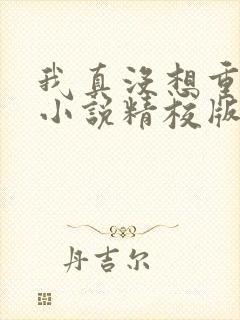 我真没想重
小说精校版
丹吉尔